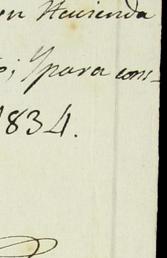 on Hacienda
; Ypara cons-
1834.